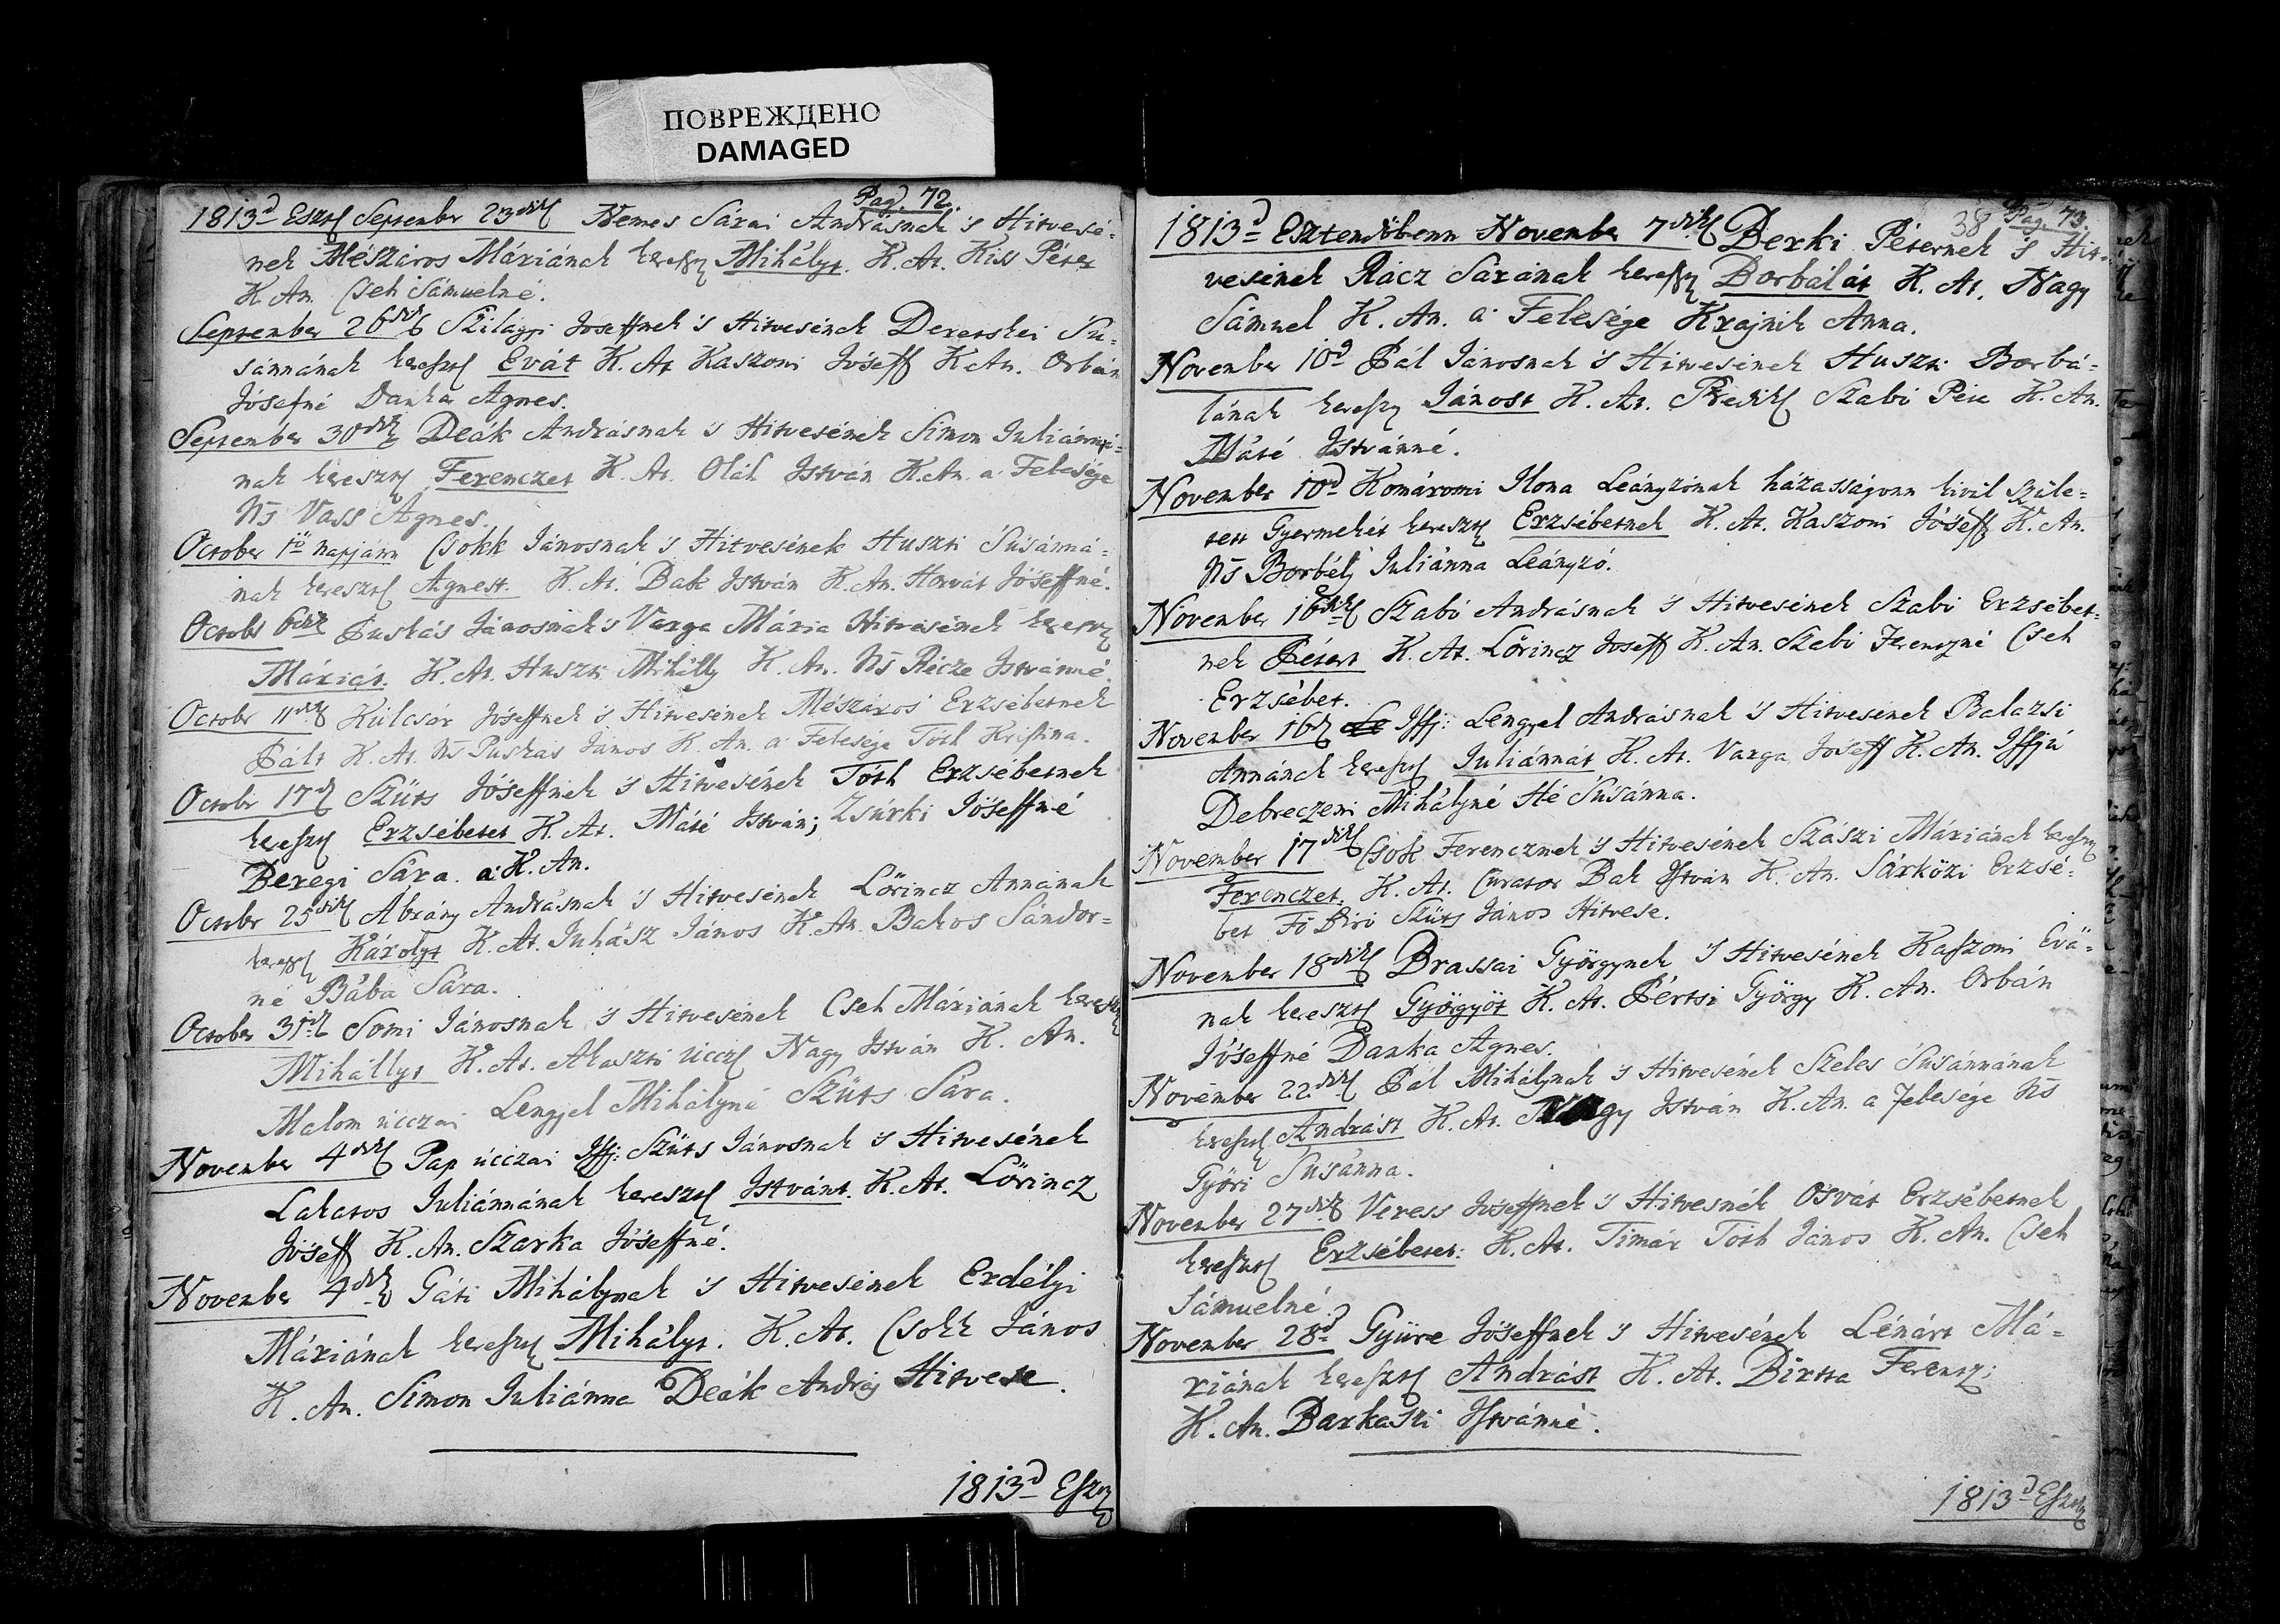 ПОВРЕЖДЕНО
DAMAGED
Pag. 72.
1813d Eszt September 23dik Nemes Sárai Andrásnak 's Hitvesé-
nek Mészáros Máriának kereszt Mihályt. K. At. Kiss Péter
K. An. Cseh Sámuelné.
September 26dik Szilágyi Joseffnek 's Hitvesének Deretskei Su-
sánnának kereszt Evát K. At Kaszoni Jóseff K. An. Orbán
Jósefné Danka Agnes.
September 30dik Deák Andrásnak 's Hitvesének Simon Juliánná-
nak kereszt Ferenczet K. At. Oláh István K. An. a Felesége
Ns Vass Agnes.
October 1ső napjánn Csokk Jánosnak 's Hitvesének Huszti Súsánná-
nak kereszt Agnest. K. At. Bak István K. An. Horvát Jóseffné.
Octobr 6dik Puskás Jánosnak 's Varga Mária Hitvesének kereszt
Máriát. K. At. Huszti Mihálly K. An. Ns Récze Istvánné.
October 11dik Kúlcsár Jóseffnek 's Hitvesének Mészáros Erzsébetnek
Pált K. At. Ns Puskás János K. An. a Felesége Tóth Kristina.
Octobr 17d Szüts Jóseffnek 's Hitvesének Tóth Erzsébetnek
kereszt Erzsébetet K. At. Máté István; Zsúrki Jóseffné
Beregi Sára. a K. An.
Octobr 25dik Abrány Andrásnak 's Hitvesének Lőrincz Annának
kereszt Károlyt K. At. Juhász János K. An. Bakos Sándor-
né Bába Sára.
October 31d Somi Jánosnak 's Hitvesének Cseh Máriának kereszt
Mihállyt K. At. Akaszti uccz Nagy István K. An.
Malom úcczai Lengyel Mihályné Szüts Sára.
November 4dik Pap úcczai Iffj: Szüts Jánosnak 's Hitvesének
Lakatos Juliánnának kereszt Istvánt. K. At. Lőrincz
Jóseff K. An. Szarka Jóseffné.
November 4dik Gáti Mihálynak 's Hitvesének Erdélyi
Máriának kereszt Mihályt. K. At. Csokk János
K. An. Simon Juliánna Deák András Hitvese.
1813d Eszt
38 Pag. 73.
1813d Esztendőbenn November 7dik Berki Péternek 's Hit-
vesének Rácz Sárának kereszt Borbálát K. At. Nagy
Sámuel K. An. a Felesége Krajnik Anna.
November 10d Pál Jánosnak 's Hitvesének Huszti Borbá-
lának kereszt Jánost K. At. Predik Szabó Péte K. An.
Máté Istvánné.
November 10d Komáromi Ilona Leányzónak házasságonn kivűl szüle-
tett Gyermekét kereszt Erzsébetnek K. At. Kaszoni Jóseff K. An.
Ns Borbély Juliánna Leányzó.
November 16dik Szabó Andrásnak 's Hitvesének Szabó Erzsébet-
nek Pétert K. At. Lőrincz Joseff K. An. Szabó Ferenczné Cseh
Erzsébet.
November 16d Iffj: Lengyel Andrásnak 's Hitvesének Balazsi
Annának kereszt Juliánnát K. At. Varga Jóseff K. An. Iffjú
Debreczeni Mihályné Hé Súsánna.
November 17dik Csok Ferencznek 's Hitvesének Szászi Máriának kereszt
Ferenczet. K. At. Curator Bak István K. An. Sárközi Erzsé-
bet Fő Biró Szüts János Hitvese.
November 18dik Brassai Györgynek 's Hitvesének Kaszoni Evá-
nak kereszt Györgyöt K. At. Pértsi György K. An. Orbán
Jóseffné Danka Agnes.
November 22dik Pál Mihálynak 's Hitvesének Szeles Súsánnának
kereszt Andrást K. At. Nagy István K. An. a Felesége Ns
Győri Susánna.
November 27dik Veress Jóseffnek 's Hitvesnek Osvát Erzsébetnek
kereszt Erzsébetet: K. At. Timár Tóth János K. An. Cseh
Sámuelné.
November 28d Gyüre Jóseffnek 's Hitvesének Lénárt Má-
riának kereszt Andrást K. At. Birtta Ferentz;
K. An. Barkaszi Istvánné.
1813d Eszt